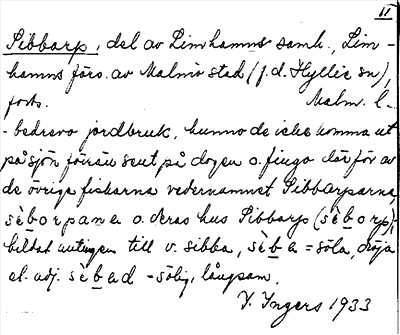 II
Sibbarp, del av Limhamns samh., Lim-
hamns förs. av Malmö stad (f.d. Hyllie sn),
forts. Malm. l.
- bedrevo jordbruk, kunno de icke komma ut
på sjön förrän sent på dagen o. fingo därför av
de övriga fiskarna vedernamnet Sibbarparna,
sèborpana o. deras hus Sibbarp (sèborp),
bildat antingen till v. sibba, sèba = söla, dröja
el. adj. sèbad - sölig, långsam.
V. Ingers 1933